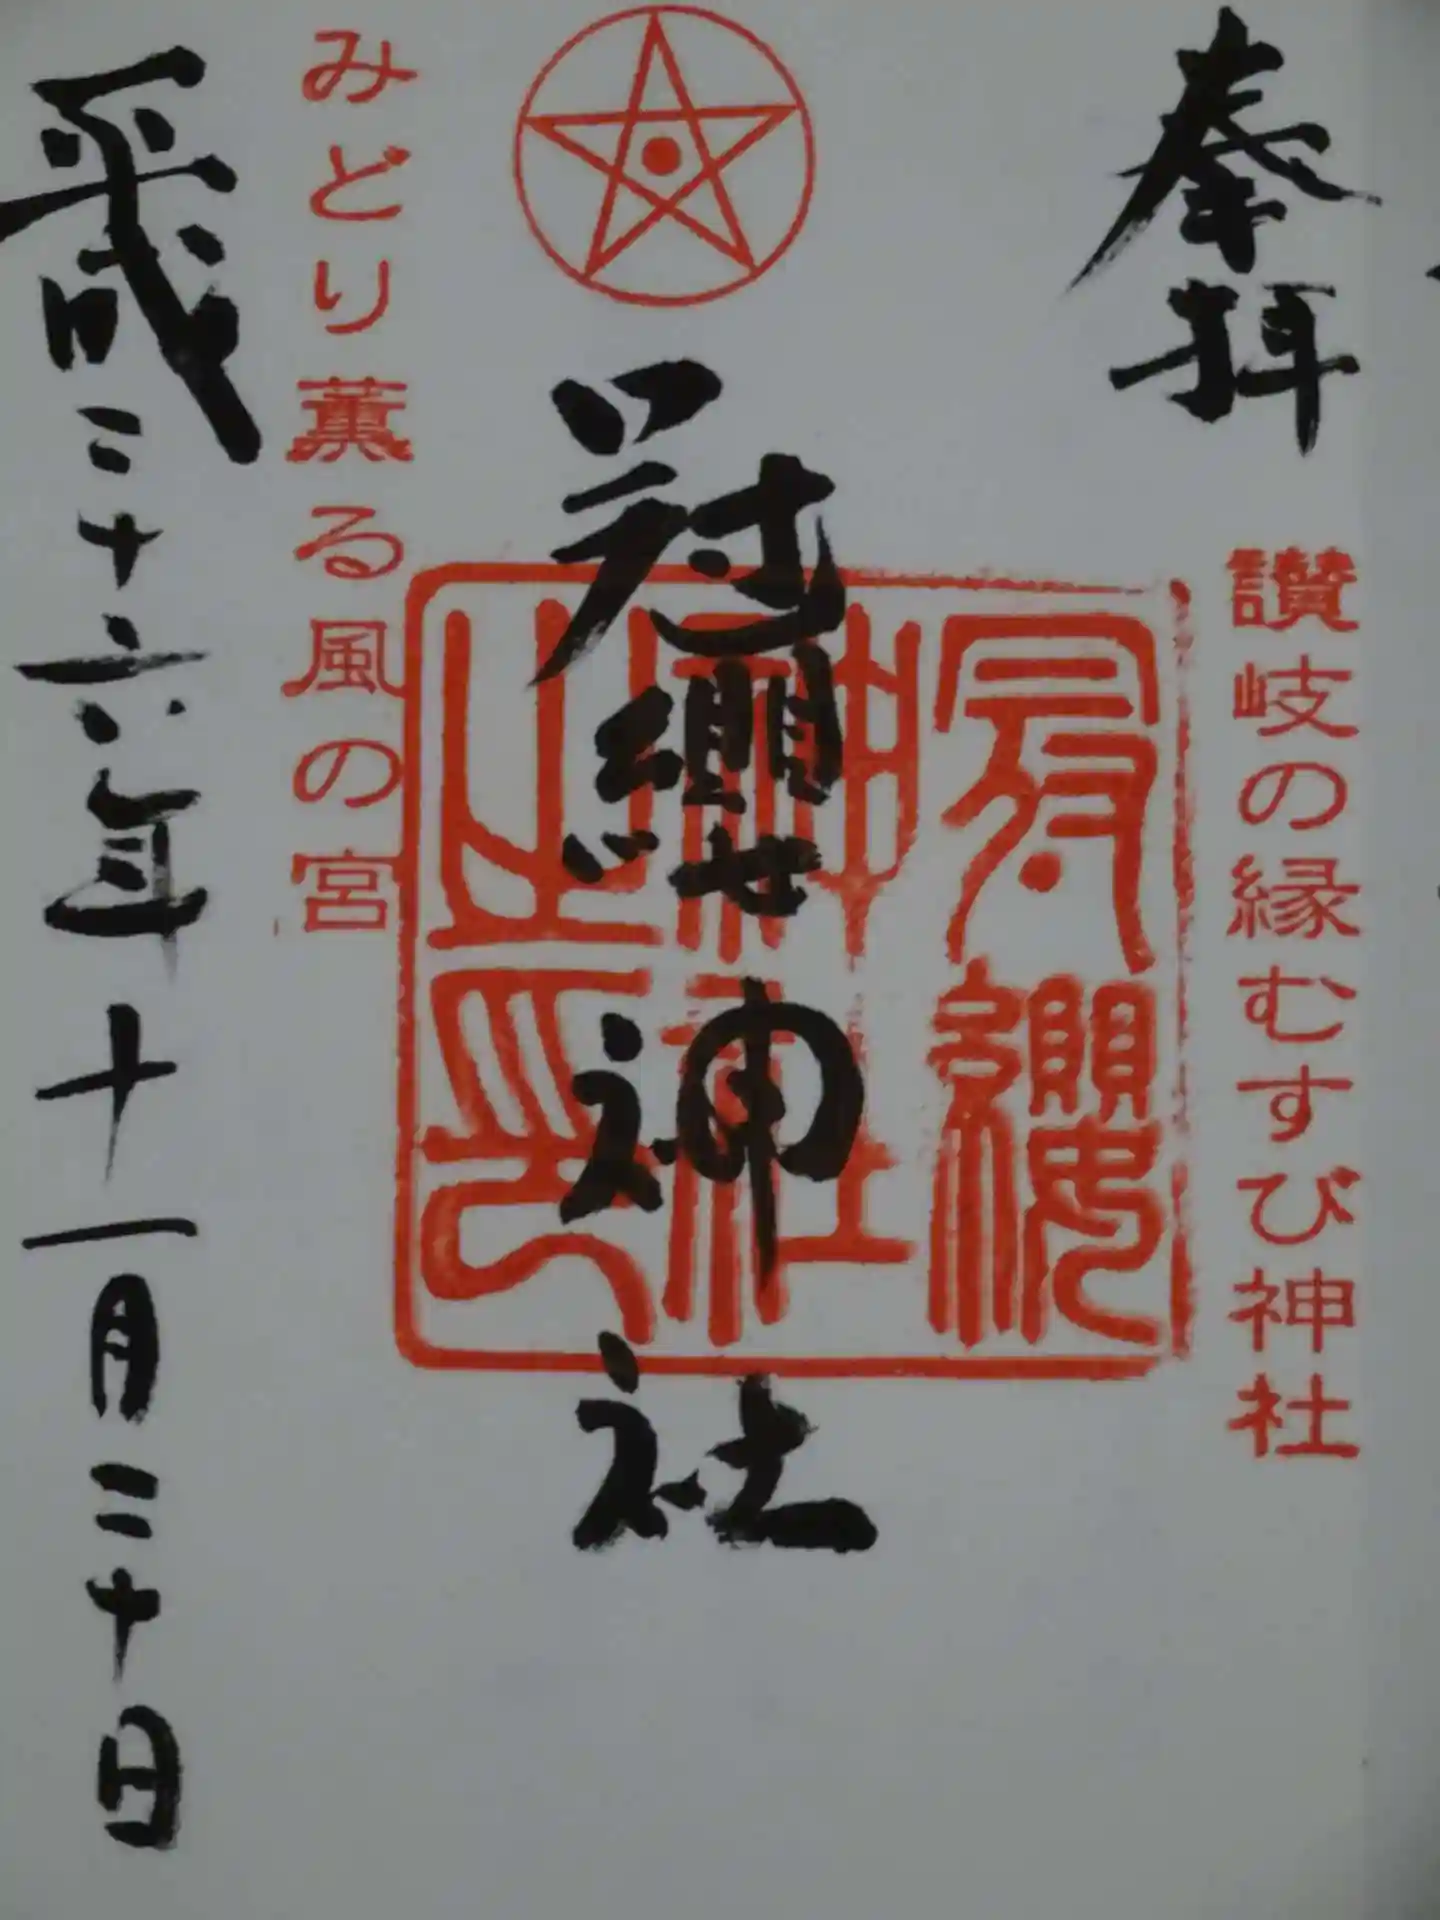 奉拝
讃岐の縁むすび神社
冠纓神社
冠纓神社之印
みどり薫る風の宮
平成二十六年十一月二十日